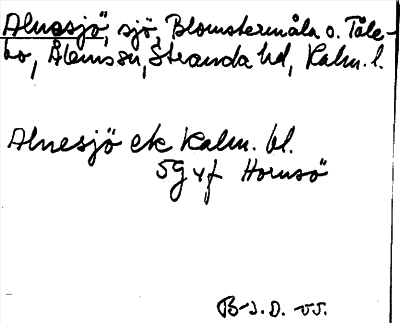 Alnesjö, sjö, Blomstermåla o. Tåle-
bo, Ålems sn, Stranda hd, Kalm. l.
Alnesjö ek Kalm. bl.
5g vf Hornsö
B-J.D.